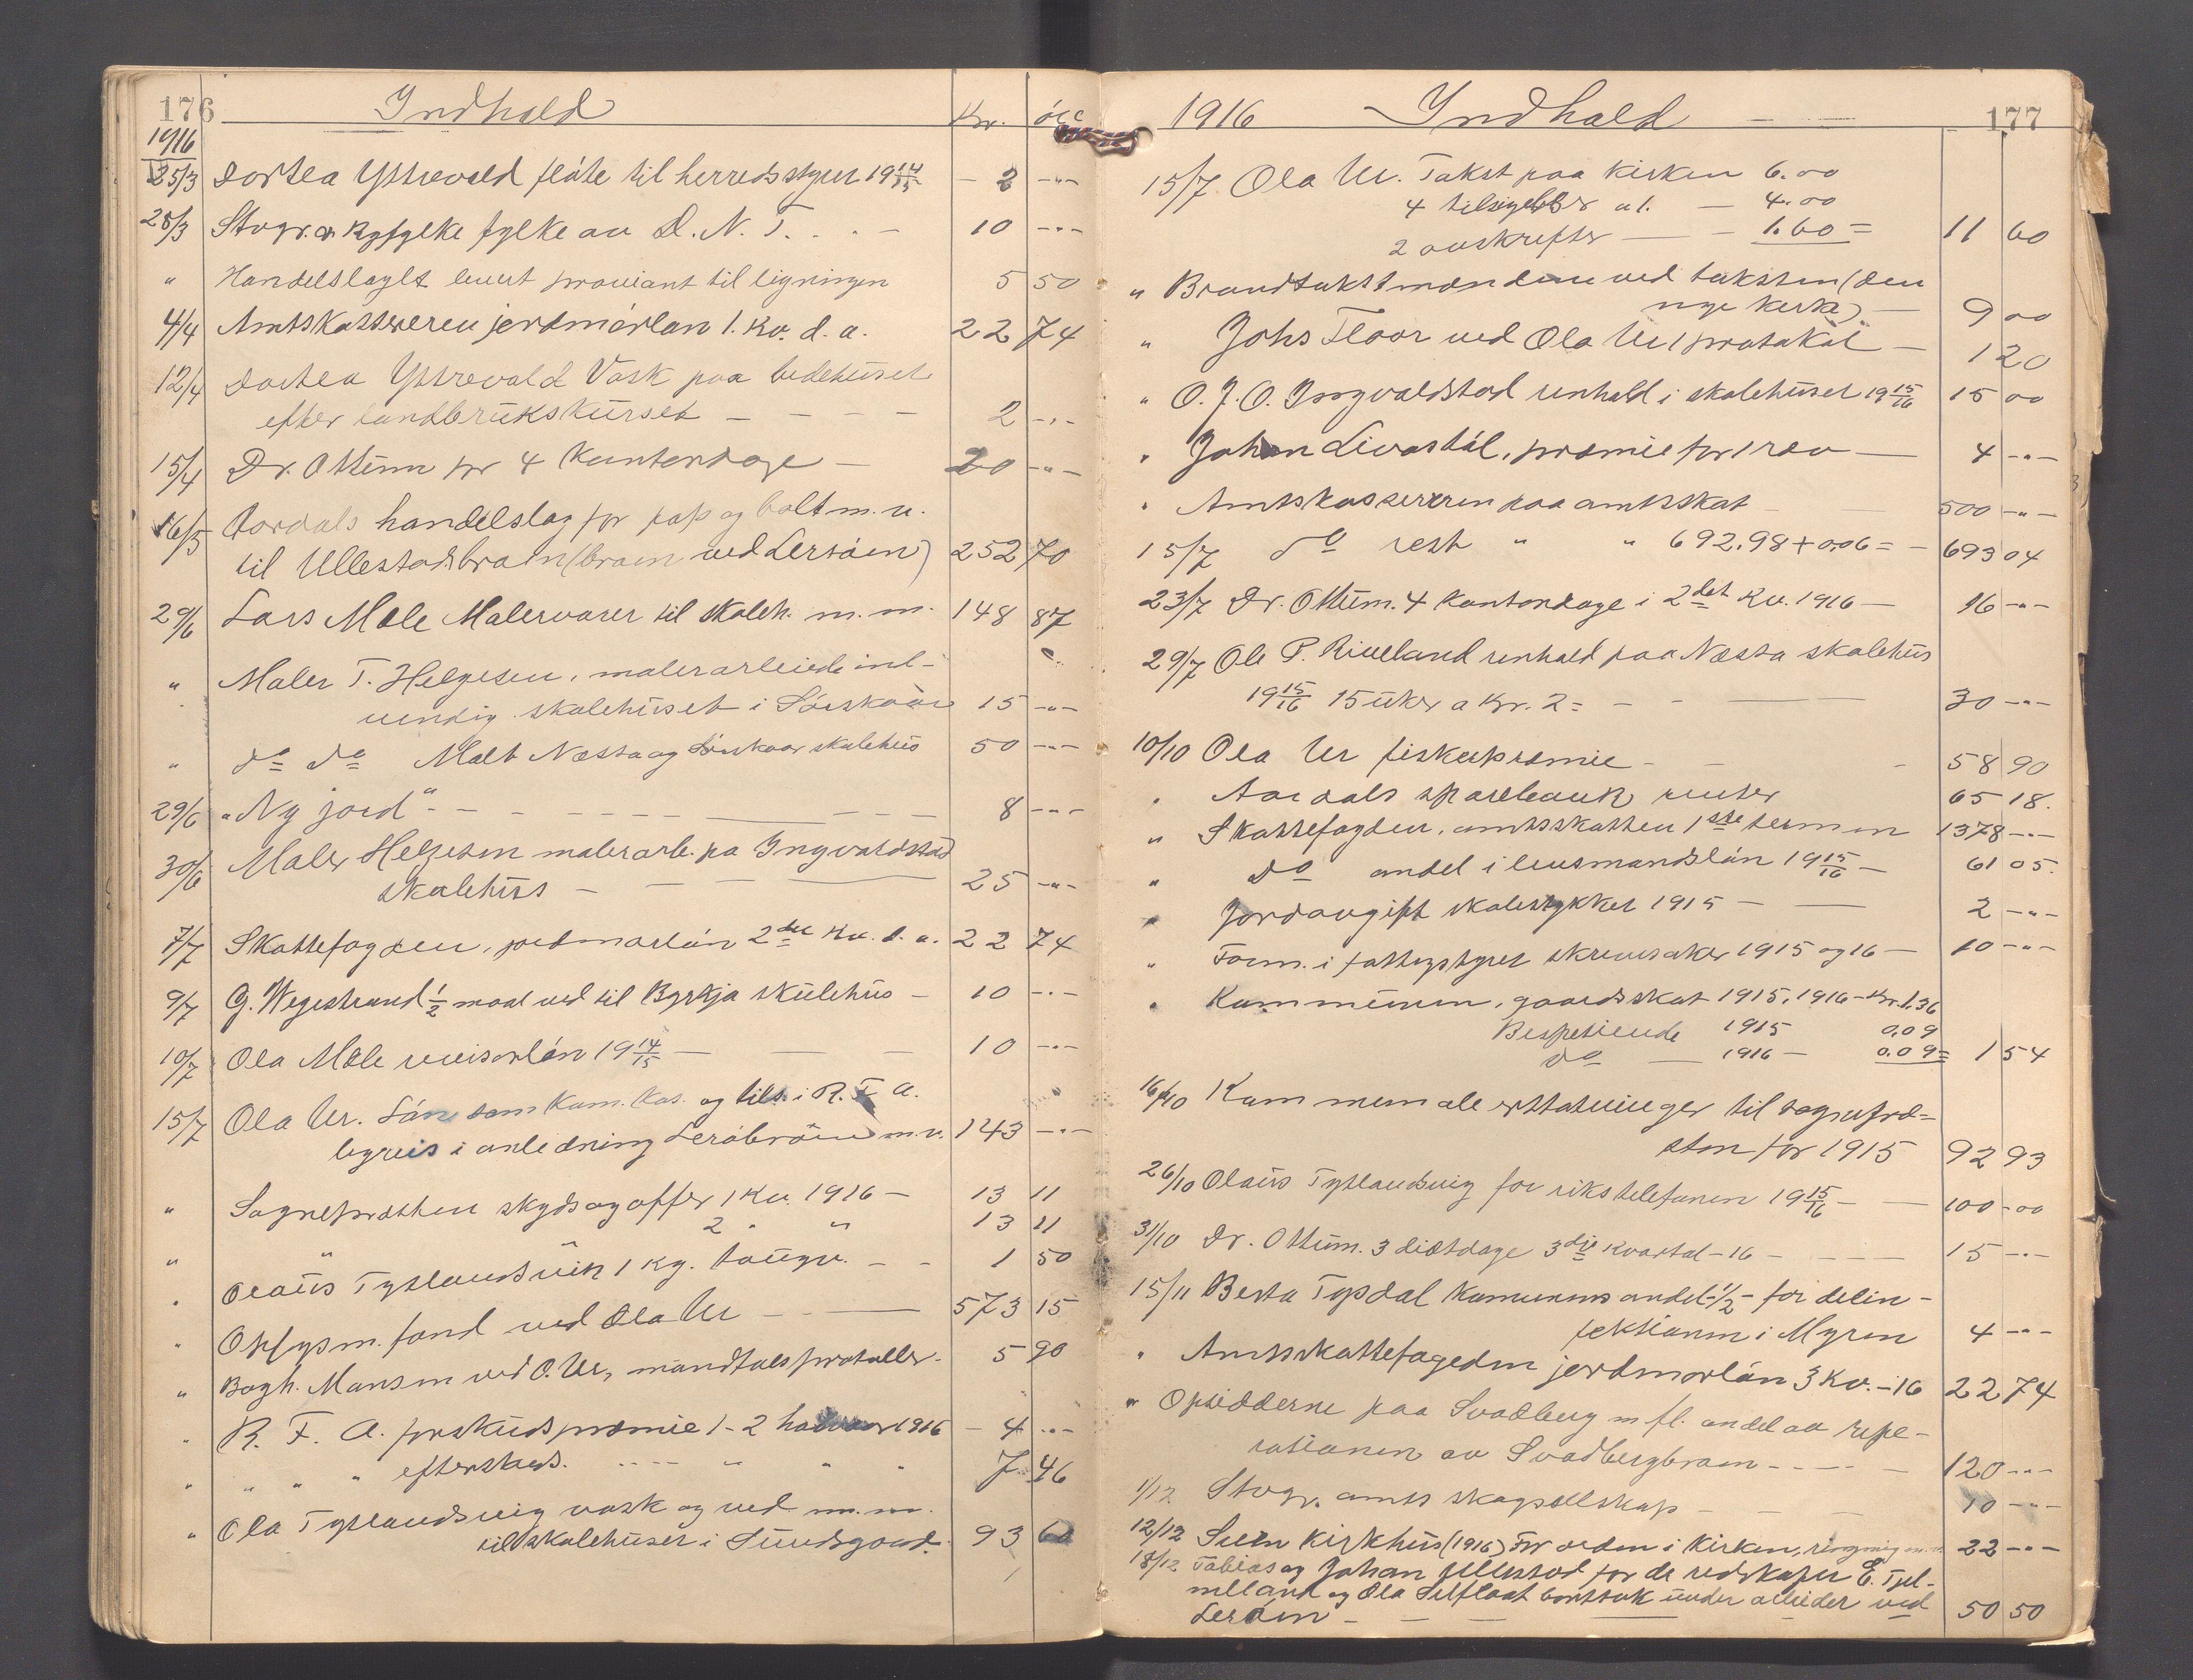 176
Indhold
Kr. øre
1916
25/3 Dortea Ystrevold fløte til herredsstyret 19 14/15 – 2 -"-
28/3 Stvgr. & Ryfylke fylke av D. N. T. . . – 10 -"-
" Handelslaglt levert proviant til ligningen 5 50
4/4 Amtskassereren jordmorløn 1. Kv. d. a. 22 74
12/4 Dortea Ystrevold Vask paa bedehuset
efter landbrukskurset – – – – 2 -"-
15/4 Dr. Ottum for 4 Kontordage – 20 -"-
16/5 Aardals handelslag for pap og bolt m. v.
til Ullestadsbroen (broen ved Leråen) 252 70
29/6 Lars Mæle Malervarer til skoleh. m. m. 148 87
" Maler T. Helgesen, malerarbeide ind-
vendig skolehuset i Sørskaar 15 -"-
" do do Malt Næsta og Sørskaar skolehus 50 -"-
29/6 "Ny jord" – – – – – 8 -"-
30/6 Maler Helgesen malerarb. pa Ingvaldstad
skolehus – – – 25 -"-
7/7 Skattefogden, jordmorløn 2det Kv. d. a. 22 74
9/7 G. Wegestrand 1/2 maal ved til Byrkja skulehus – 10 -"-
10/7 Ola Mæle revisorløn 19 14/15 – – – 10 -"-
15/7 Ola Ur. Løn som Kom. Kas. og tils. i R. F. A.
byreis i anledning Leråbroen m. v. 143 -"-
" Sognepræsten skyds og offer 1 Kv. 1916 – 13 11
" " 2 " " 13 11
" Olaus Tyslandsvik 1 kg. taugv. – – 1 50
" Oplysn. fond ved Ola Ur – – 573 15
" Bogh. Mansen ved O. Ur, mandtalsprotoller. 5 90
" R. F. A. forskudspræmie 1-2 halvaar 1916 – 4 -"-
" " " " efterskuds. - - - - " " " 7 46
" Ola Tyslandsvig vask og ved m. m.
til skolehuset i Sundsgaard. 93 60
1916 Indhold
177
15/7. Ola Ur. Takst paa kirken 6.00
4 tilsigelser a 1. – 4.00
2 avskrifter – – 1.60 = 11 60
" Brandtakstmændene ved taksten (den
nye kirke) – 9 00
" Johs Floor ved Ola Ur 1 protokol – 1 20
" O. J. O. Ingvaldstad renhold i skolehuset 19 15/16 15 00
" Johan Livastøl, præmie for 1 ræv – 4 -"-
" Amtskassereren paa amtsskat 500 -"-
15/7 do rest " " 692,98 + 0,06 = – 693 04
23/7 Dr. Ottum. 4 Kontordage i 2det Kv. 1916 – 16 -"-
29/7 Ole P. Riveland renhold paa Næsta skolehus
19 15/16 15 uker a Kr. 2 = – – – 30 -"-
10/10 Ola Ur fiskepræmie – – – 58 90
" Aardals sparebank renter 65 18.
" Skattefogden, amtsskatten 1ste termin 1378 -"-
" do andel i lensmandsløn 19 15/16 – 61 05.
" Jordavgift skolestykket 1915 – – 2 -"-
" Form. i fattigstyret skrivesaker 1915 og 16 – 10 -"-
" Kommunen, gaardsskat 1915, 1916 – Kr. 1.36
Bispetiende 1915 0.09
do – 1916 – 0.09 = 1 54
16/10 Kommunale erstatninger til sognepræ=
sten for 1915 92 93
26/10 Olaus Tyslandsvig for rikstelefonen 19 15/16 – – 100 -00
31/10 Dr. Ottum. 3 diætdage 3dje Kvartal – 16 – – – 15 -"-
15/11 Berta Tysdal Kommunens andel – 1/2 – for desin-
fektionen i Myren 4 -"-
" Amtsskattefogeden jordmorløn 3 Kv. – 16 22 74
" Opsidderne paa Svadberg m fl. andel av repe-
rationen av Svadbergbroen – – – – 120 -"-
1/12 Stvgr. amts skogselskap – – 10 -"-
12/12 Sven Kirkhus (1916) For orden i kirken, ringning m. v. 22 -"-
18/12 Tobias og Johan Ullestad for de redskaper E. Tjel-
melland og Ola Selflaat borttok under arbeidet ved
Leråen – – – – 50 50